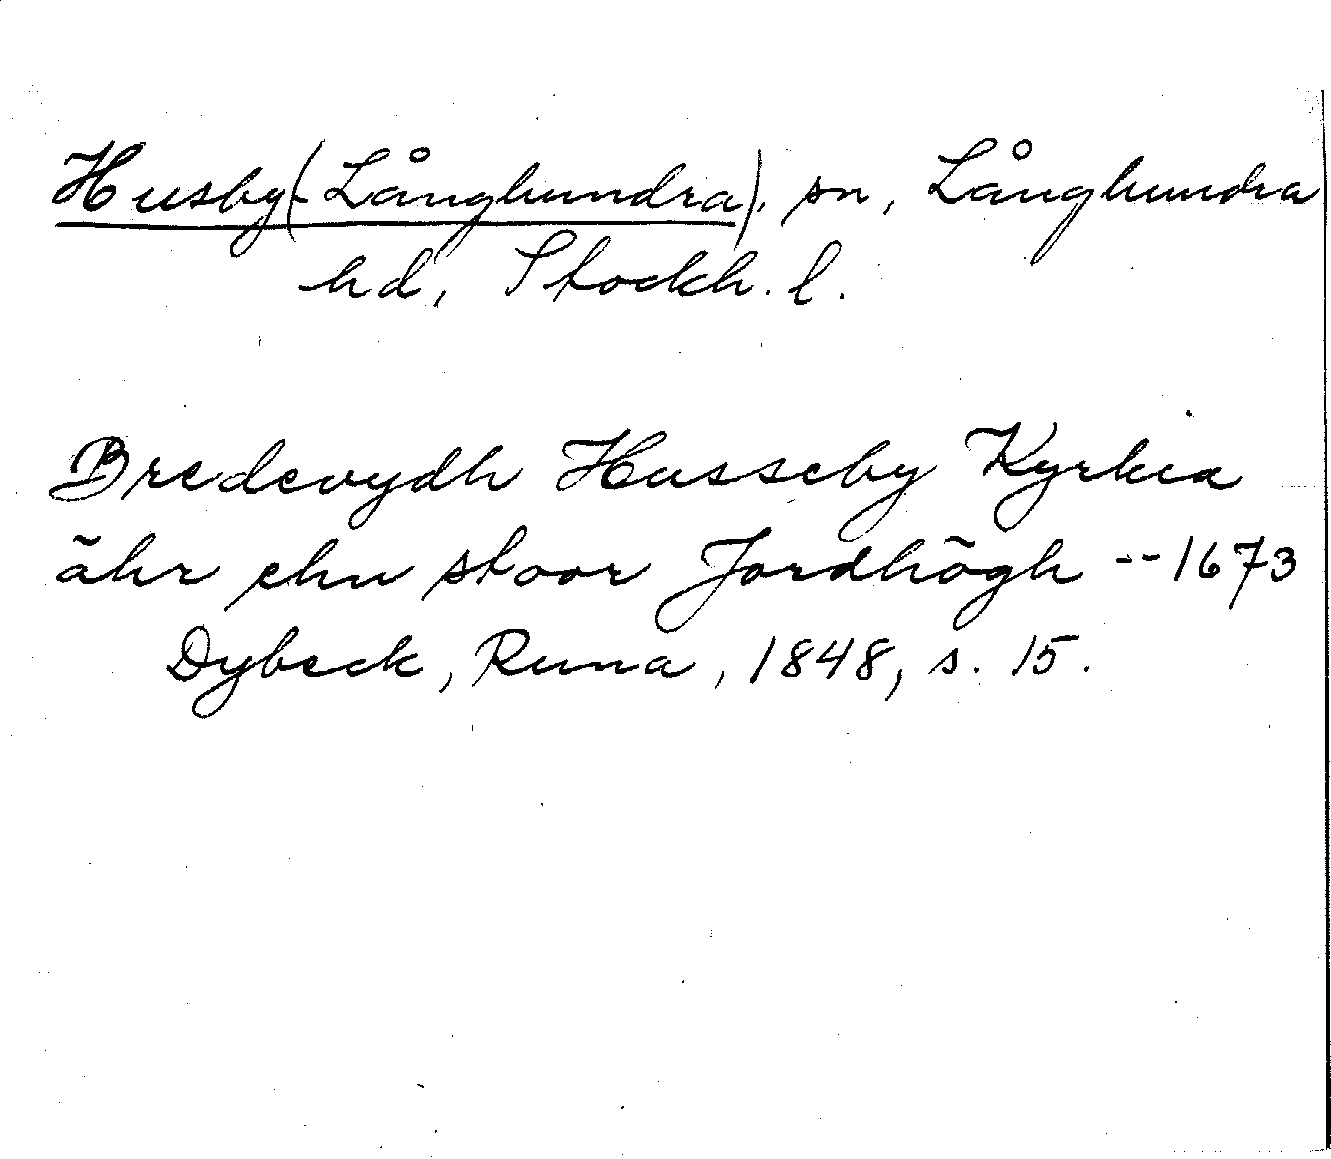 Husby(-Långhundra), sn, Långhundra
hd, Stockh. l.
Bredevydh Husseby Kyrkia
ähr ehn stoor Jordhögh -- 1673
Dybeck, Runa, 1848, s. 15.